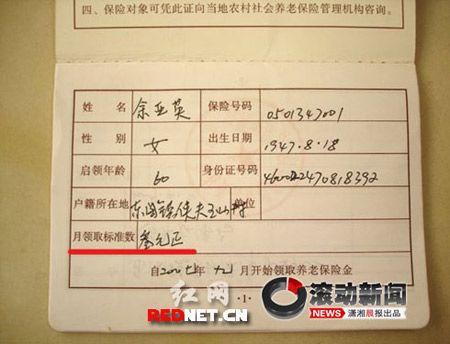 四、保险对象可凭此证向当地农村社会养老保险管理机构咨询。
姓 名 余亚英 保险号码 0501347001
性 别 女 出生日期 1947.8.18
启领年龄 60 身份证号码
户籍所在地 单位
月领取标准数 叁元正
自 年 月开始领取养老保险金
-1-
红网
REDNET.CN
滚动新闻
NEWS 潇湘晨报出品